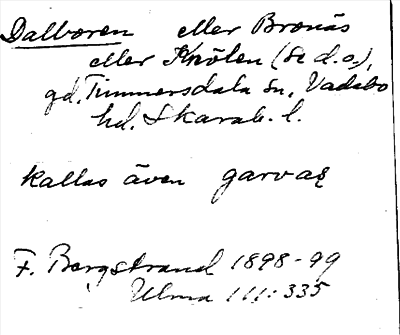 Dalboren eller Bronäs
eller Knölen (se d.o.),
gd, Timmersdala sn, Vadsbo
hd, Skarab. l.
kallas även garvaς
F. Bergstrand 1898-99
Ulma 111:335